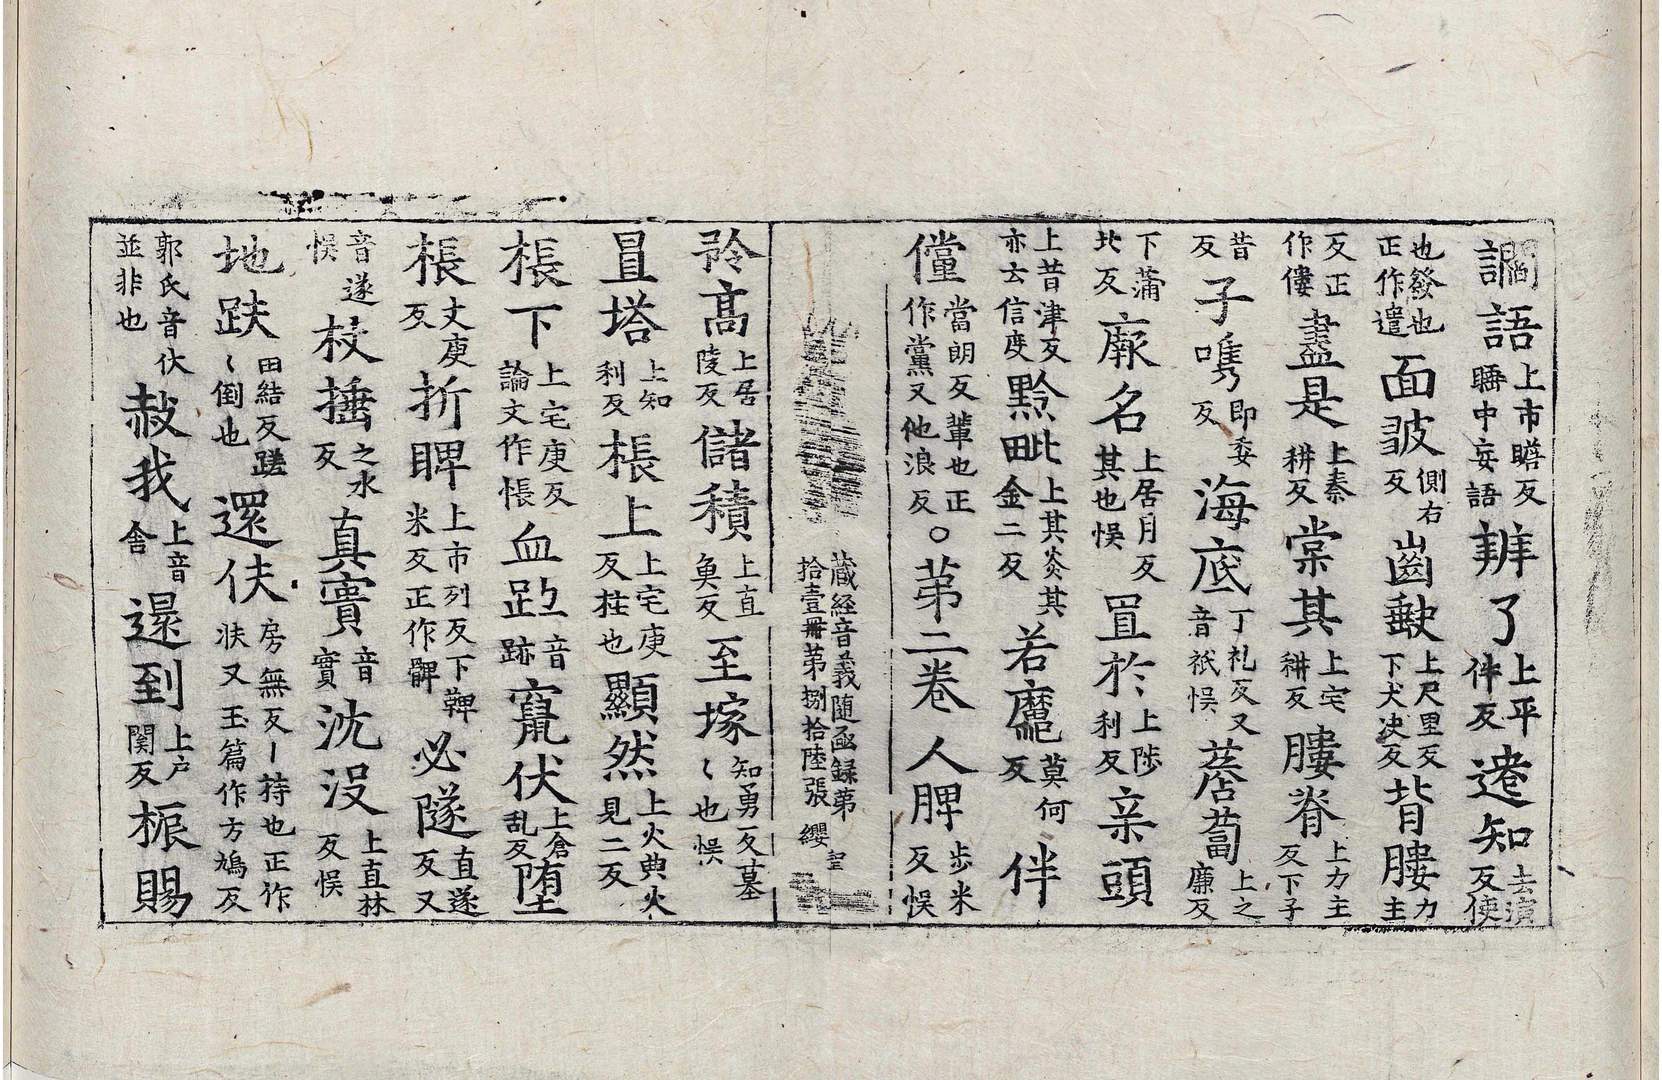 讕語上市瞻反睡中妄語辦了上平伴反遣知去演反使
也發也正作遣面皱側右反齒齩上尺里反下犬决反背膢力主
反正作僂盡是上秦耕反棠其上宅耕反膢脊上力主反下子
昔反子嶲即委反海底丁礼反又音祇悮蓎蔔上之廉反
下蒲北反厥名上居月反其也悮罝於上陟利反亲頭
上昔津反亦去信反黔毗上其炎其金二反若魔莫何反伴
儻當朗反輩也正作黨又他浪反○苐二卷人脾步米反悮
藏經音義隨函録苐拾壹冊苐捌拾陸張 纓
矜高上居陵反儲積上直魚反至塚知勇反墓〻也悮
罝塔上知利反棖上上宅庚反拄也顯然上火典火見二反
棖下上宅庚反論文作悵血跡音跡竄伏上倉乱反堕
棖丈庚反折睥上市列反下鞞米反正作髀必隊直遂反又
音遂悮杖捶之水反真實音實沈没上直林反悮
地趺田結反蹉〻倒也還伏房無反丨持也正作㳇又玉篇作方鳩反
郭氏音伏並非也赦我上音舍還到上户関反桭賜